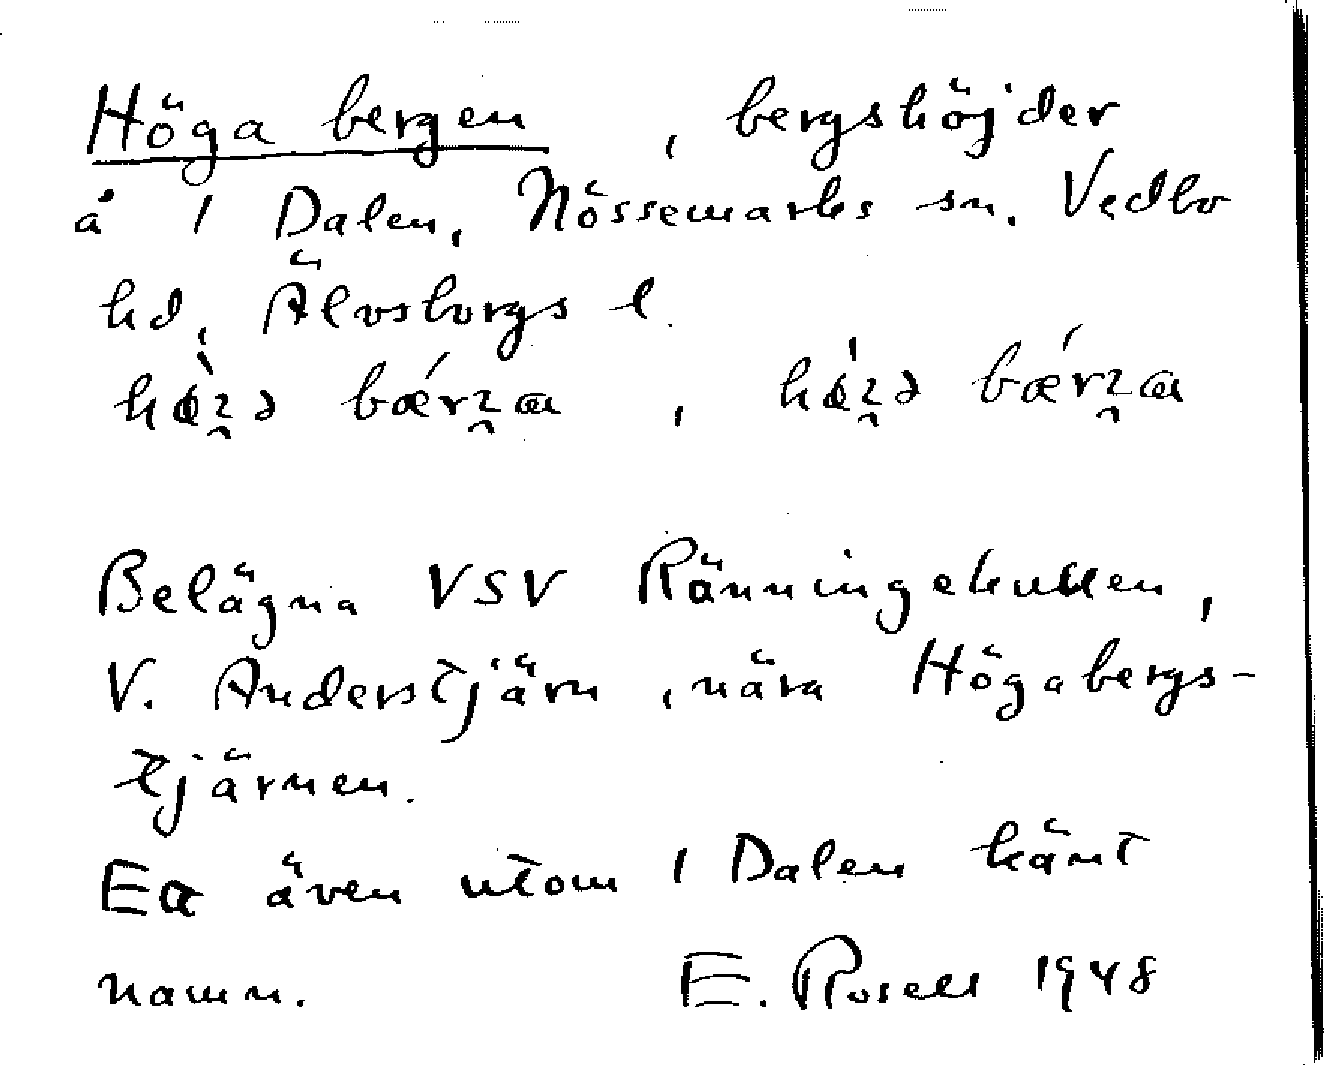 Höga bergen , bergshöjder
å 1 Dalen, Nössemarks sn. Vedbo
hd, Älvsborgs l.
Belägna VSV Ränningekullen,
V. Anderstjärn, nära Högabergs-
tjärnen.
Ett även utom 1 Dalen känt
namn. E. Rosell 1948